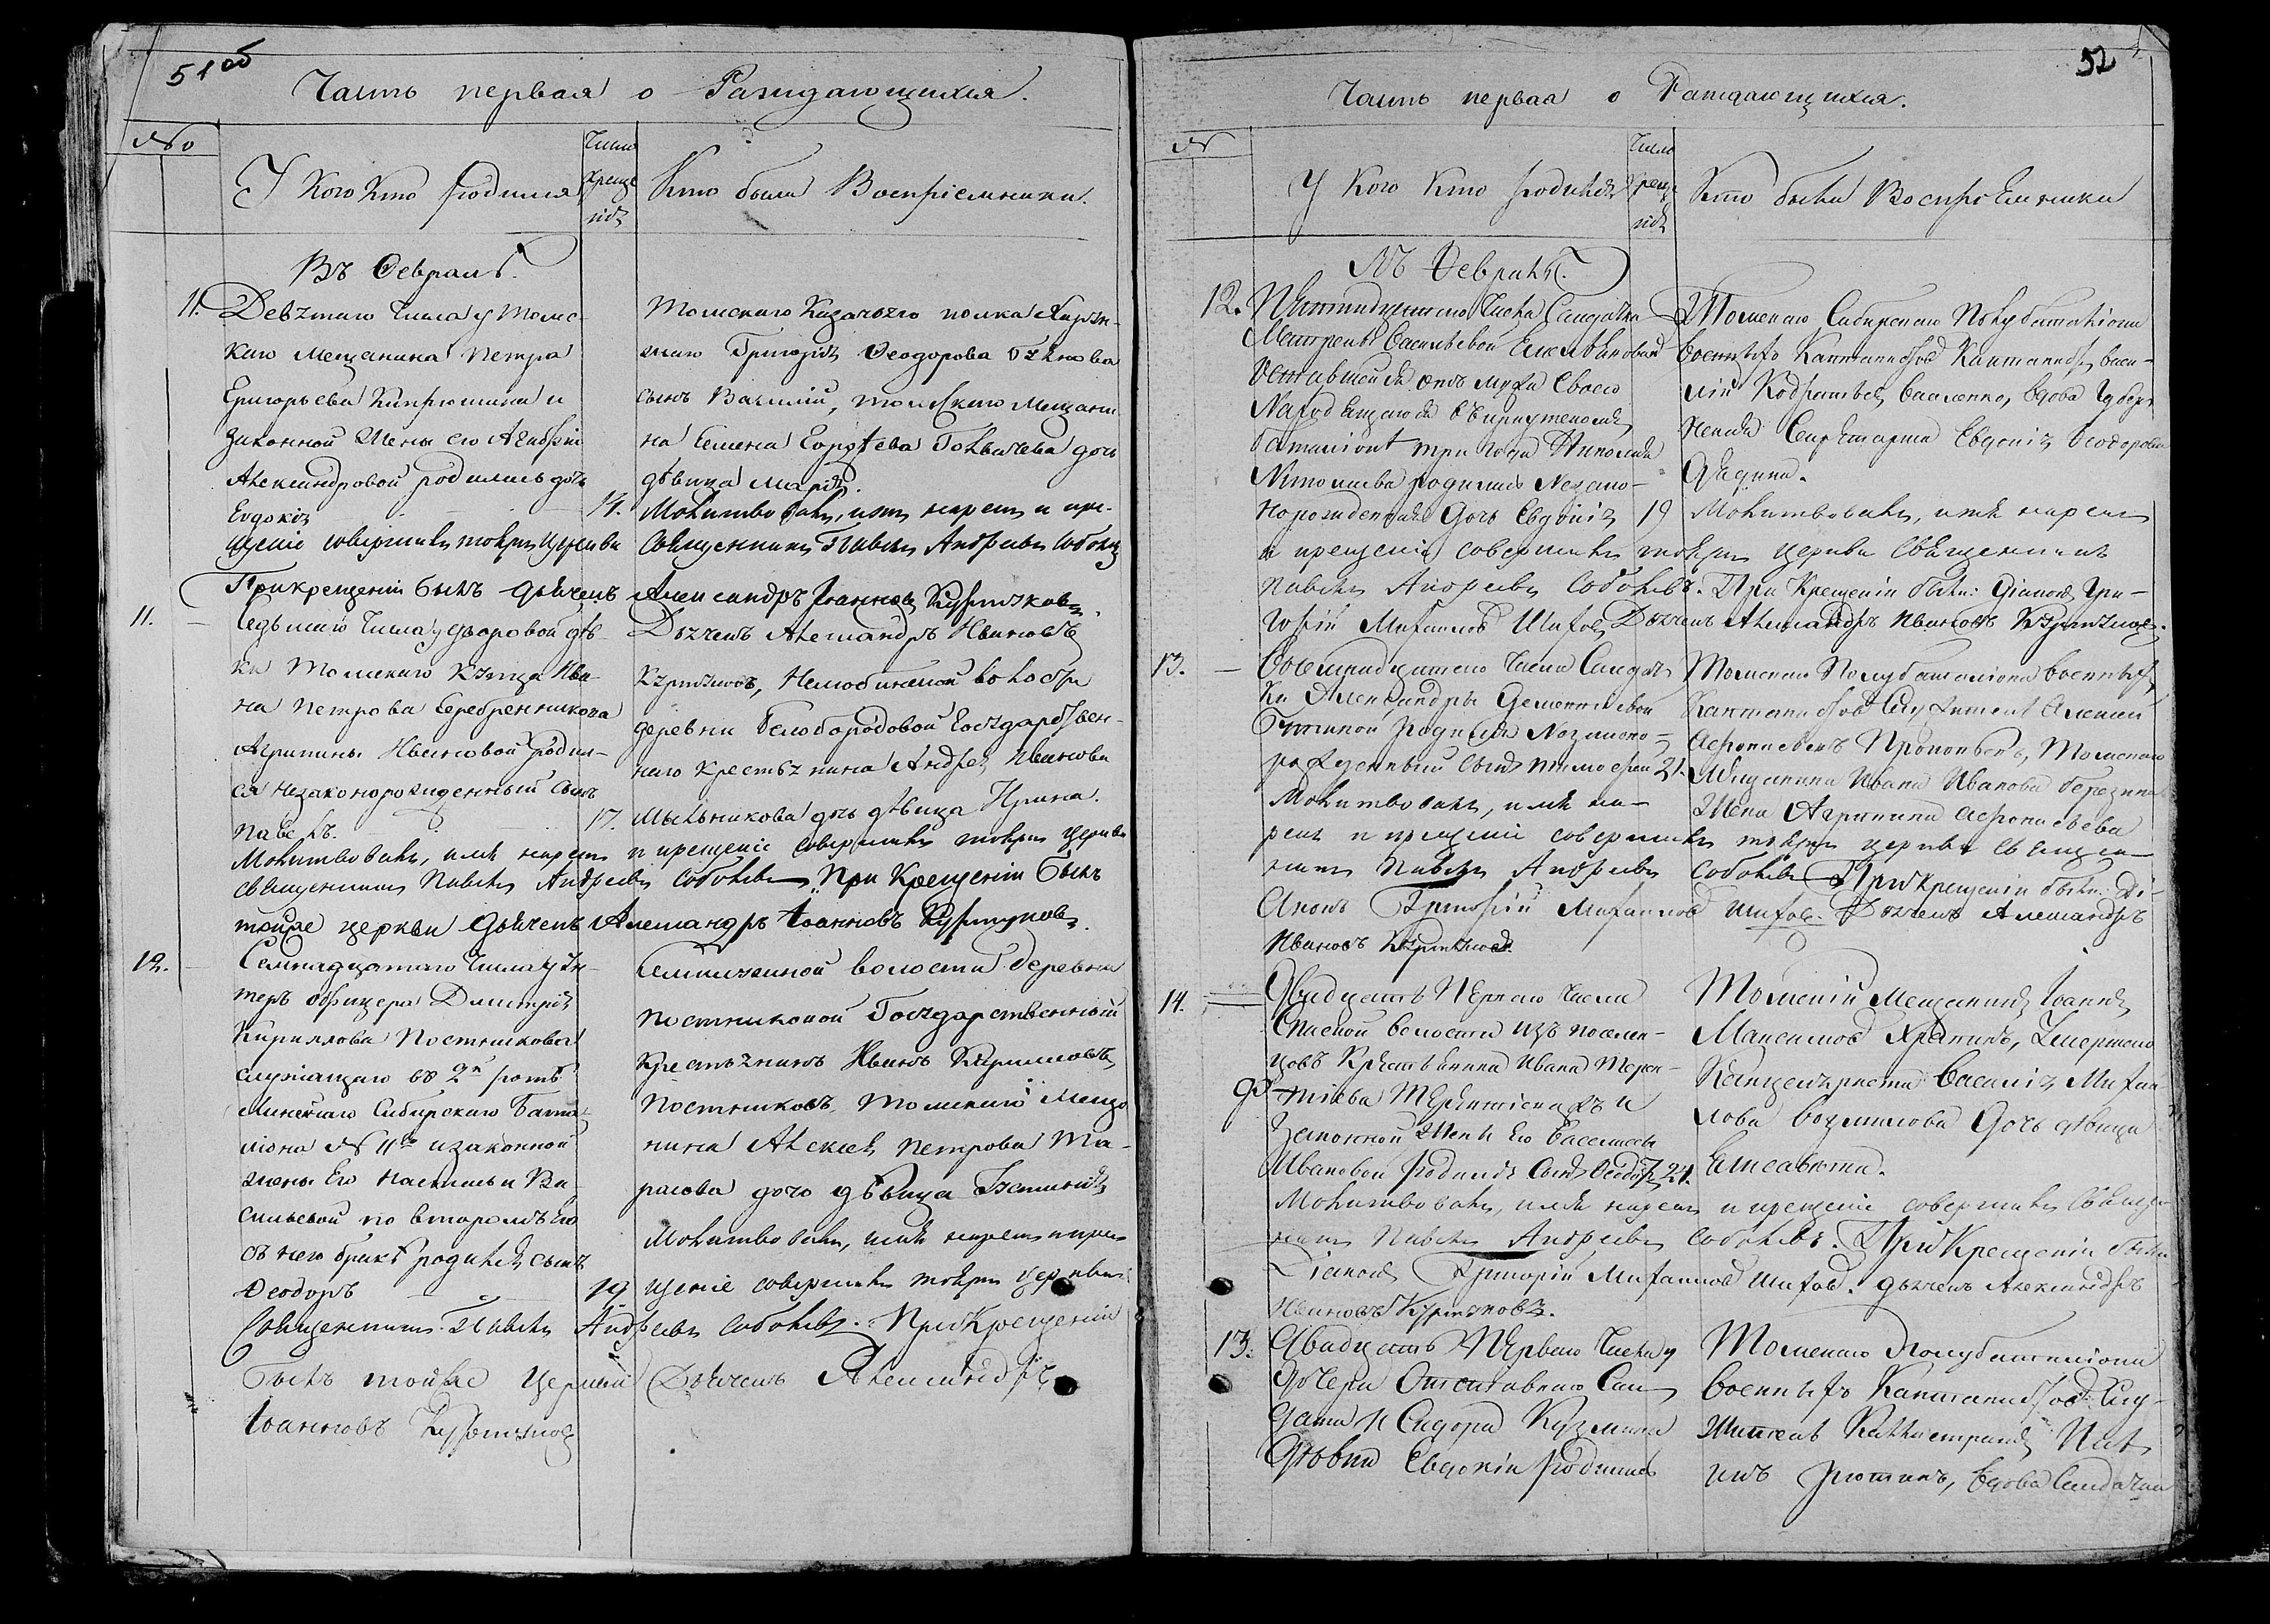 51 об
Часть первая о Раждающихся.
№
У кого кто родился
Число крещенія
Кто были Воспріемники.
Въ Февралѣ.
11. Девятаго Числа у Томс-
каго Мещанина Петра
Григорьева и
законной Жены его Агафьи
Александровой родилась дочь
Евдокія 14.
Томскаго Казачьяго полка
Григорія Феодорова
сынъ Василій, томскаго Мещани-
на Семена дочь
дѣвица Марія.
Молитвовалъ, имя нарекъ и кре-
щеніе совершилъ тойже церкви Священникъ Павелъ Андреевъ Соболевъ
При крещеніи былъ дьячекъ Александръ Іоанновъ Куртуковъ.
11. Седьмаго Числа у дворовой дѣв-
ки Томскаго Купца Ива-
на Петрова Серебренникова
Агрипины Ивановой родил-
ся незаконорожденный сынъ
Павелъ. 17.
Дьячекъ Александръ Ивановъ
Куртуковъ, Нелюбинской волости
деревни Белобородовой Государствен-
наго крестьянина Андрея Иванова
Мыльникова дочь дѣвица Ирина.
Молитвовалъ, имя нарекъ и крещеніе совершилъ тойже церкви
священникъ Павелъ Андреевъ Соболевъ. При Крещеніи былъ
тойже церкви дьячекъ Александръ Іоанновъ Куртуковъ.
12. Семнадцатаго Числа у Ун-
теръ офицера Димитрія
Кириллова Постникова
служащаго въ 2й ротѣ
Линейнаго Сибирскаго Бата-
ліона № 11 и законной
жены Его Настасьи Ва-
сильевой по второмъ Его
съ нею бракѣ родился сынъ
Феодоръ 19
Семилужной волости деревни
Постниковой Государственный
крестьянинъ Иванъ Кириловъ
Постниковъ, Томскаго Меща-
нина Алексея Петрова Та-
расова дочь дѣвица
Молитвовалъ, имя нарекъ и кре-
щеніе совершилъ тойже церкви
Священникъ Павелъ Андреевъ Соболевъ. При Крещеніи
былъ тойже церкви Дьячекъ Александръ
Іоанновъ Куртуковъ
52
Часть первая о Раждающихся.
№
У кого кто родился
Число крещенія
Кто были Воспріемники
Въ Февралѣ.
12. Пятнадцатаго Числа Салдатки
Матрены Васильевой
Оставшейся отъ мужа Своего
Находящагося въ
баталіонѣ три года Николая
родилась Незако-
норожденная Дочь Евдокія 19
Томскаго Сибирскаго Полубаталіона
военныхъ Кантонистовъ Кантонистъ Васи-
лій вдова Губерн-
Секретарша Евдокія Феодорова
Молитвовалъ, имя нарекъ
и крещеніе совершилъ тойже церкви Священникъ
Павелъ Андреевъ Соболевъ. При Крещеніи были: Діаконъ Гри-
горій Михаиловъ Шиховъ Дьячекъ Александръ Ивановъ Куртуковъ.
13. Восемнадцатаго Числа Салдат-
ки Александры Дементьевой
родился Незаконо-
рожденный Сынъ Тимофей 21.
Томскаго Полубаталіона военныхъ
Кантонистовъ Служитель Алексей
Афонасьевъ Прокопьевъ, Томскаго
Мещанина Ивана Иванова
Жена Агрипина Афонасьева
Молитвовалъ, имя на-
рекъ и крещеніе совершилъ тойже церкви Священ-
никъ Павелъ Андреевъ Соболевъ. При Крещеніи были: Ді-
аконъ Григорій Михаиловъ Шиховъ. Дьячекъ Александръ
Ивановъ Куртуковъ.
14. Двадцать Перваго Числа
Спаской волости изъ поселен-
цовъ Крестьянина Ивана Терен-
тіева и
Законной Жены Его Василисы
Ивановой родился Сынъ Феодоръ 24.
Томскій Мещанинъ Іоаннъ
Максимовъ Умершаго
Канцеляриста Василія Михаи-
лова дочь дѣвица
Елисавета.
Молитвовалъ, имя нарекъ и крещеніе совершилъ Священ-
никъ Павелъ Андреевъ Соболевъ. При Крещеніи были
Діаконъ Григорій Михаиловъ Шиховъ. дьячекъ Александръ
Ивановъ Куртуковъ.
13. Двадцать Перваго Числа у
Дочери Отставнаго Сал-
дата Сидора Кузмина
Дѣвки Евдокіи родилась
Томскаго Полубаталіона
военныхъ Кантонистовъ Слу-
житель
вдова Салдатка